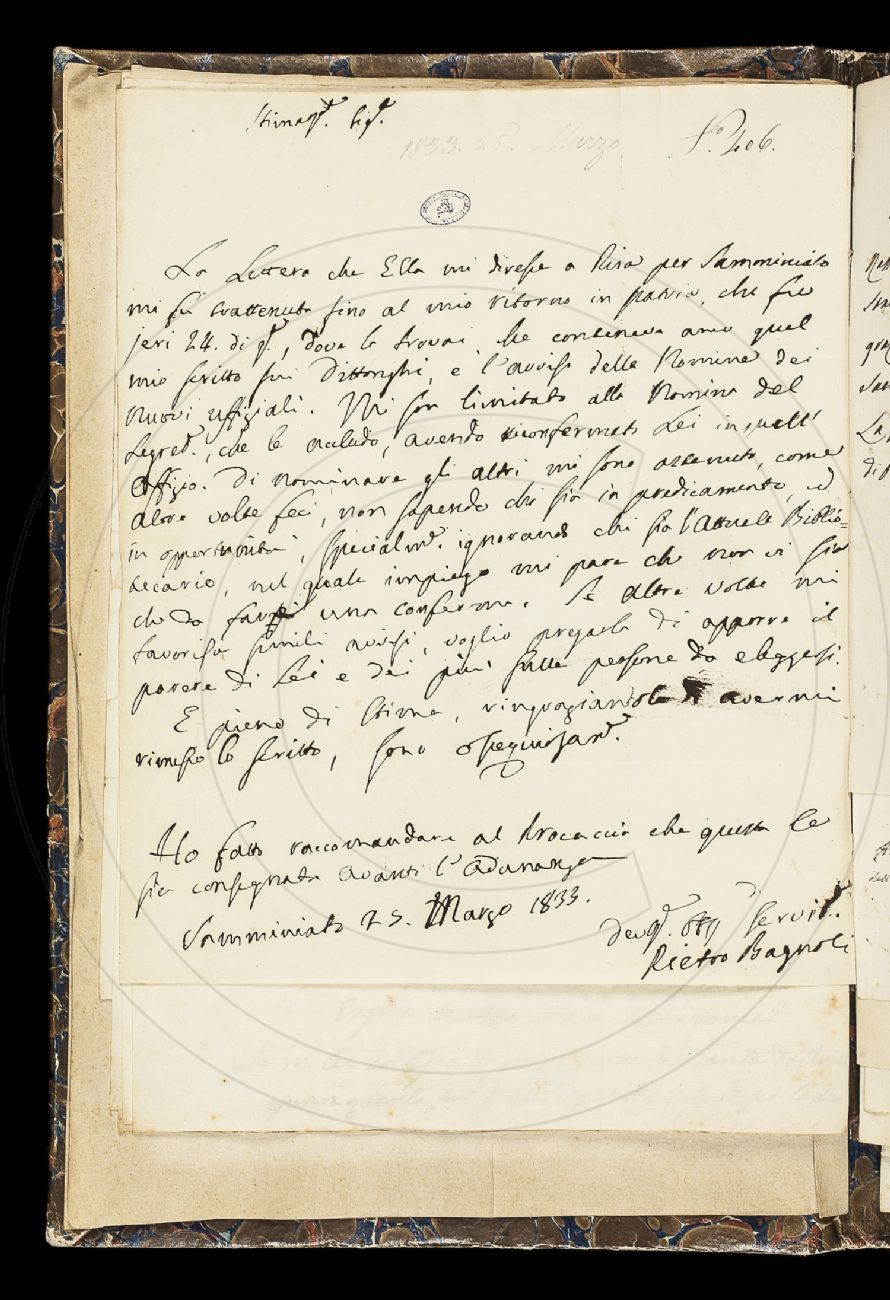 Stimatᵐᵒ. Sigʳᵉ.
1833. 25. Marzo
F.º 406.
La Lettera che Ella mi diresse a Pisa per Samminiato
mi fu trattenuta fino al mio ritorno in patria, che fu
jeri 24. di qᵗᵒ, dove la trovai, che conteneva anco quel
mio scritto sui Dittonghi, e l'avviso delle Nomine dei
nuovi uffiziali. Mi son limitato alla Nomina del
Segretº., che le accludo, avendo riconfermato Lei in quell'
offizio. Di nominare gli altri mi sono astenuto, come
altre volte feci, non sapendo chi sia in predicamento, ed
in opportunità, specialmᵗᵉ. ignorando chi sia l'attuale Biblio=
tecario, nel quale impiego mi pare che non vi sia
che da farsi una conferma. Se altre volte mi
favorisse simili avvisi, voglio pregarla di apporre il
parere di Lei e dei più sulle persone da eleggersi.
E pieno di stima, ringraziandola di avermi
rimesso lo scritto, sono ossequiosamᵗᵉ.
Ho fatto raccomandare al Procaccia che questa le
sia consegnata avanti l'adunanza
Samminiato 25. Marzo 1833.
Devᵐᵒ. Servit..
Pietro Bagnoli